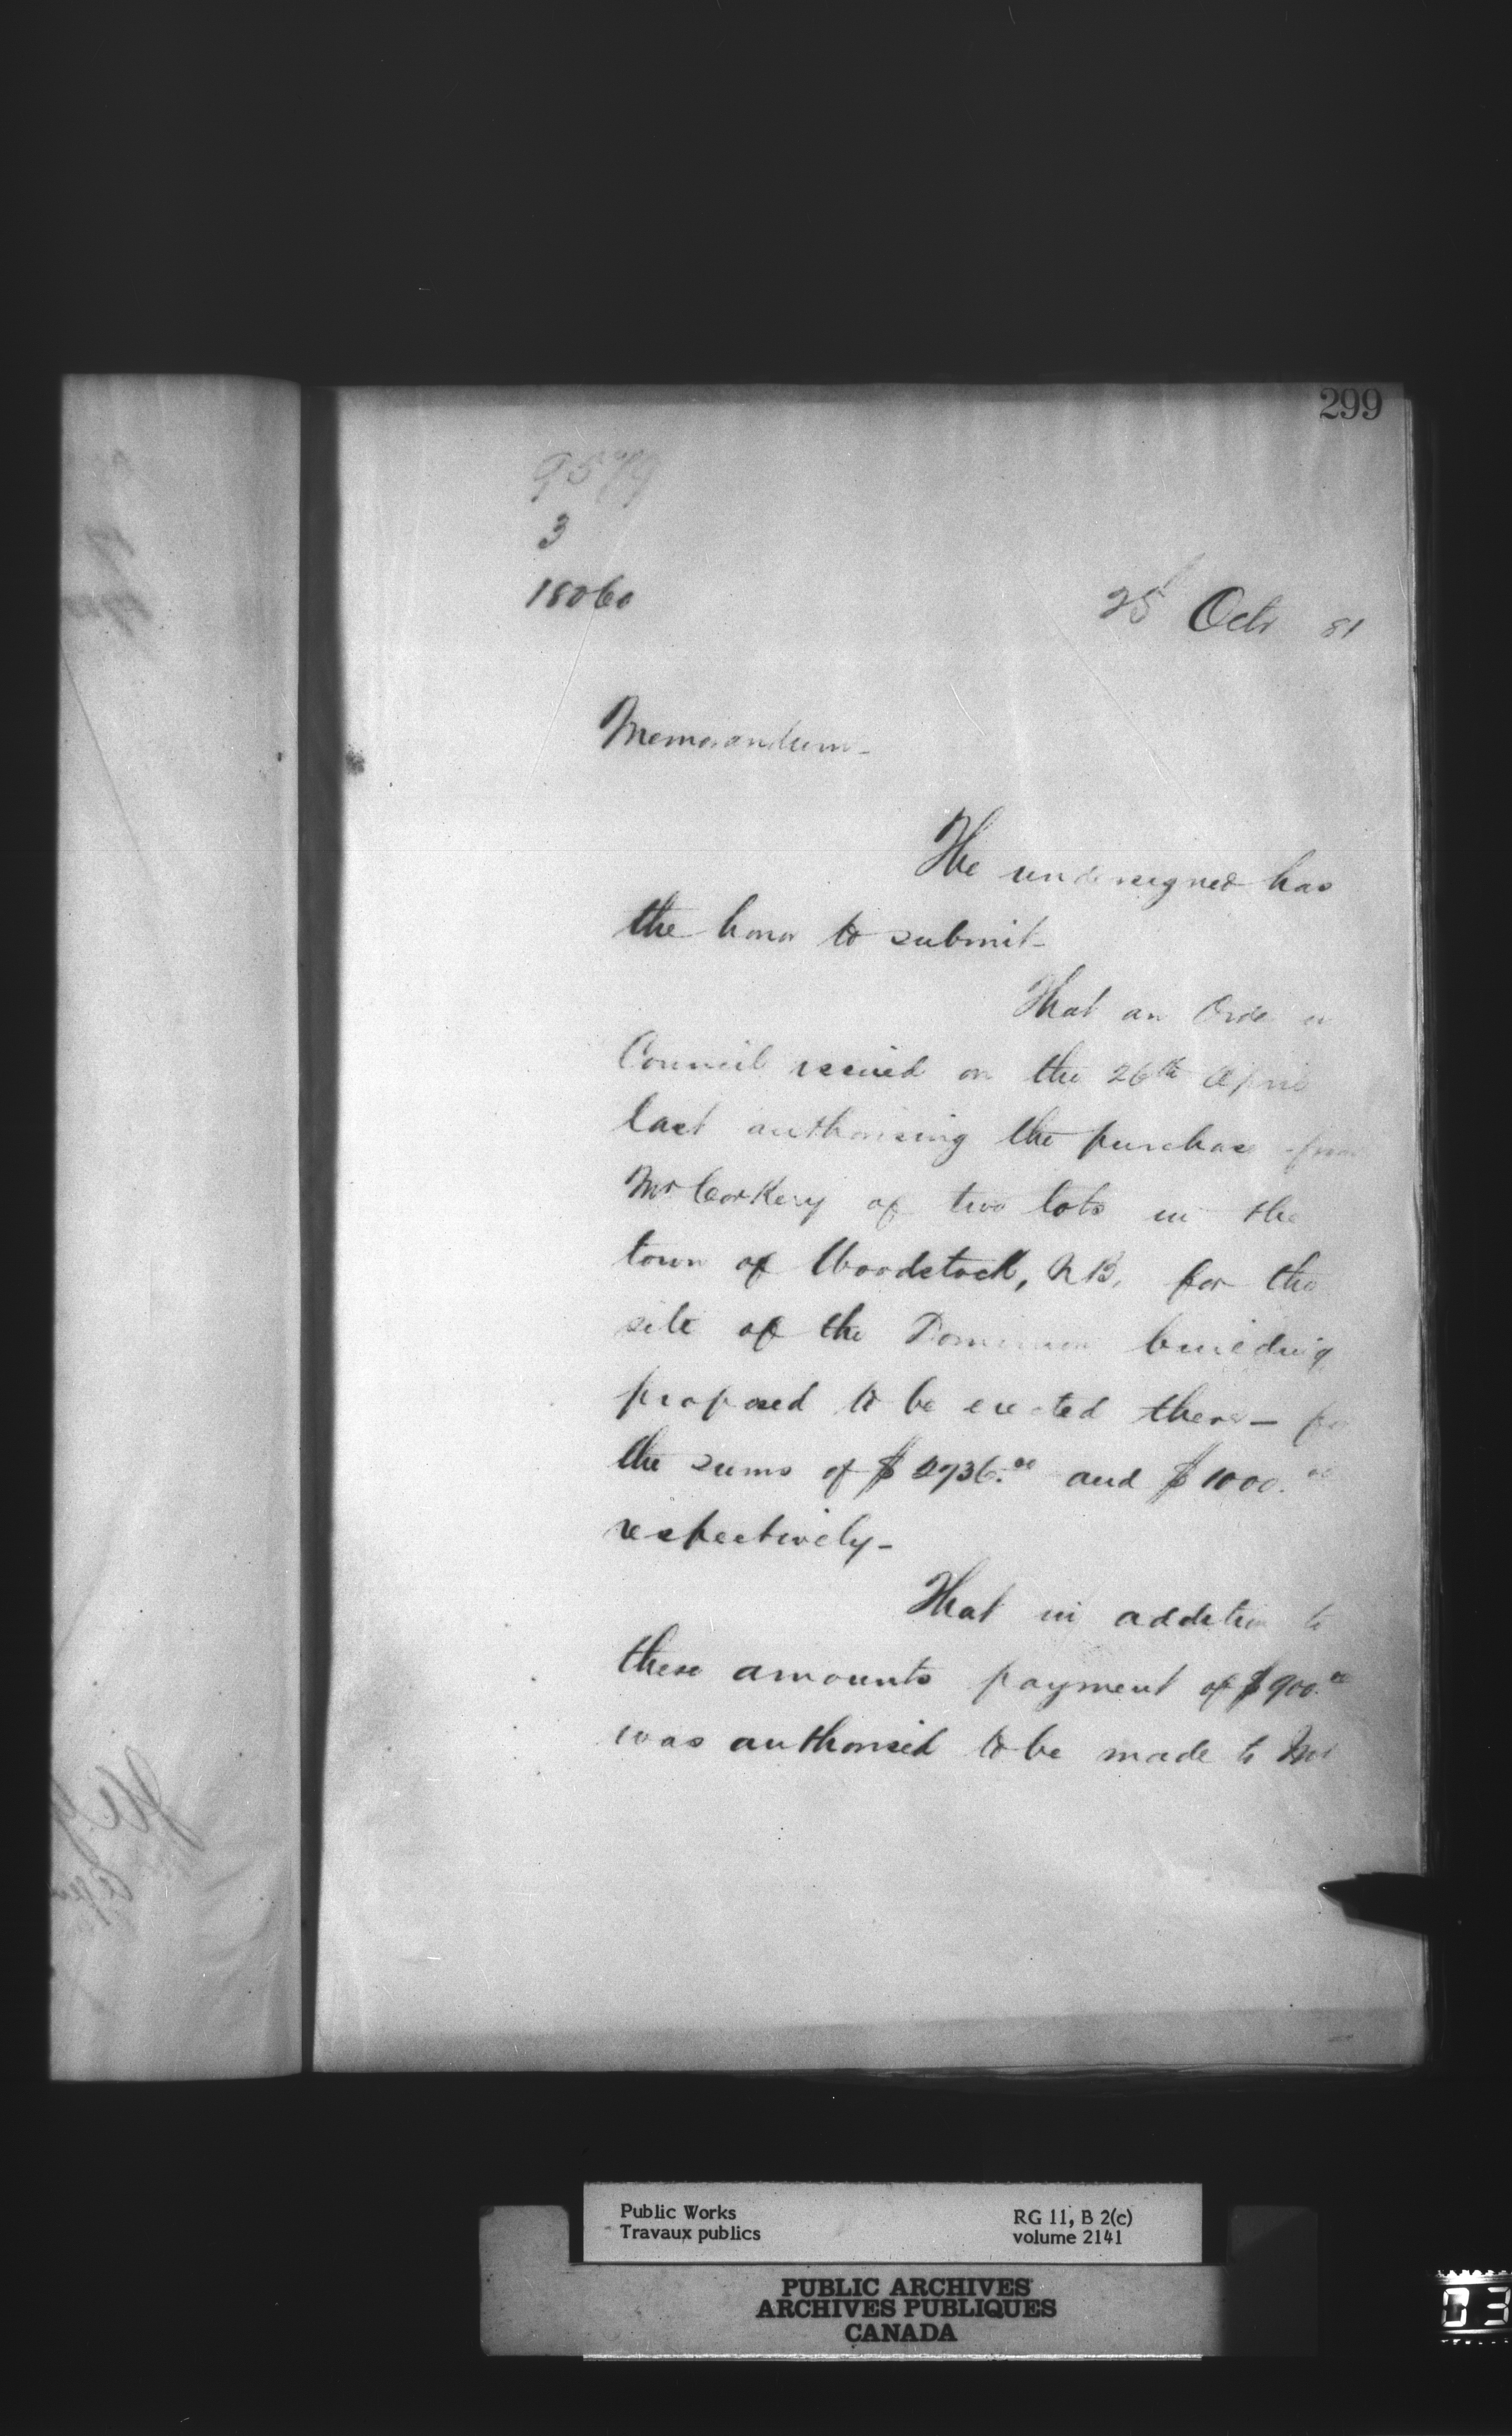 299
9579
3
18060
25 Octr 81
Memorandum-
The undersigned has
the honor to submit-
That an Order in
Council issued on the 26th April
last authorising the purchase from
Mr Corkery of two lots in the
town of Woodstock, N.B, for the
site of the Dominion building
proposed to be erected there- for
the sums of $2736.00 and $1000.00
respectively-
That in addition to
these amounts payment of $900.00
was authorised to be made to Mr
Public Works
Travaux publics
RG 11, B 2(c)
volume 2141
PUBLIC ARCHIVES
ARCHIVES PUBLIQUES
CANADA
03